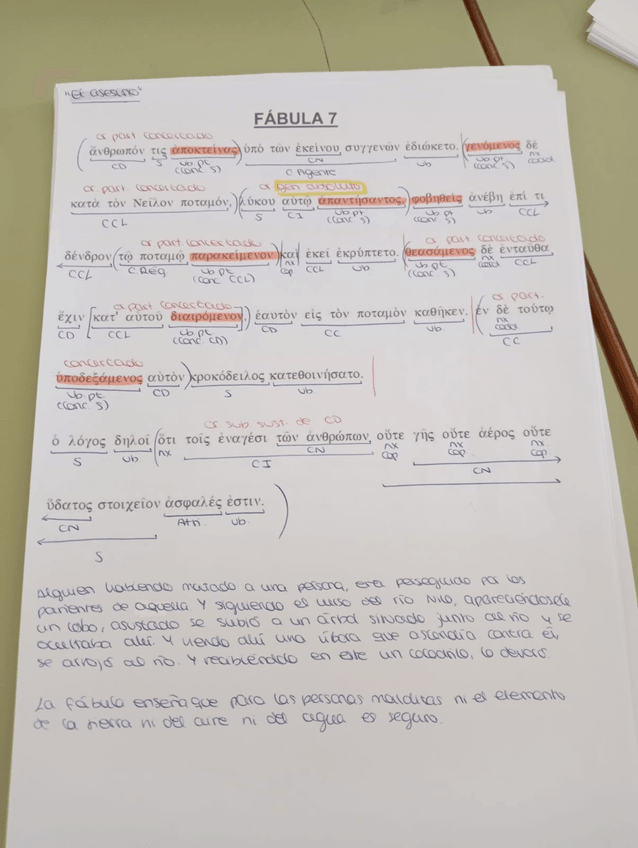 "El asesino"
FÁBULA 7
or part concertado
ἄνθρωπόν τις ἀποκτείνας ὑπὸ τῶν ἐκείνου συγγενῶν ἐδιώκετο. γενόμενος δὲ
CD S vb. pt. (conc. S) CN C Agente vb vb. pt. (conc. S) nx coord
or part. concertado or gen absoluto
κατὰ τὸν Νεῖλον ποταμόν, λύκου αὐτῷ ἀπαντήσαντος, φοβηθεὶς ἀνέβη ἐπί τι
CCL S CI vb. pt. (conc. S) vb. pt. (conc. S) vb CCL
or part. concertado or part concertado
δένδρον τῷ ποταμῷ παρακείμενον καὶ ἐκεῖ ἐκρύπτετο. θεασάμενος δὲ ἐνταῦθα
CCL C.Rég vb. pt. (conc CCL) nx cop CCL vb. vb. pt. (conc. S) nx coord CCL
or part concertado or part.
ἔχιν κατ' αὐτοῦ διαιρόμενον, ἑαυτὸν εἰς τὸν ποταμὸν καθῆκεν. ἐν δὲ τούτῳ
CD CCL vb. pt. (conc. CD) CD CC vb. nx coord CC
concertado
ὑποδεξάμενος αὐτὸν κροκόδειλος κατεθοινήσατο.
vb. pt. (conc. S) CD S vb.
or sub. sust. de CD
ὁ λόγος δηλοῖ ὅτι τοῖς ἐναγέσι τῶν ἀνθρώπων, οὔτε γῆς οὔτε ἀέρος οὔτε
S vb nx CN CI nx cop nx cop nx cop CN
ὕδατος στοιχεῖον ἀσφαλές ἐστιν.
CN Atri. vb.
S
Alguien habiendo matado a una persona, era perseguido por los
parientes de aquella y siguiendo el curso del río Nilo, apareciéndosele
un lobo, asustado se subió a un árbol situado junto al río y se
ocultaba allí. Y viendo allí una víbora que ascendía contra él,
se arrojó al río. Y recibiéndolo en este un cocodrilo, lo devoró.
La fábula enseña que para las personas malditas ni el elemento
de la tierra ni del aire ni del agua es seguro.